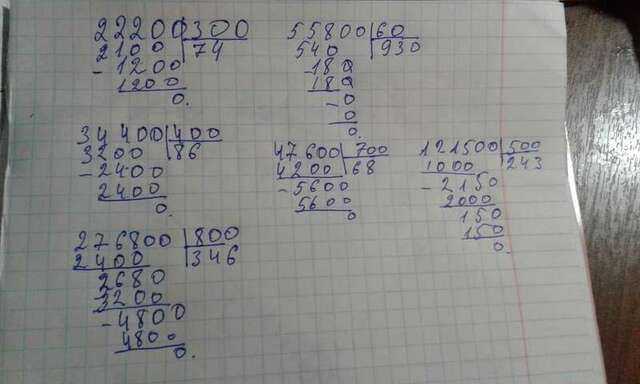 22200|300
2100|74
-1200
1200
0.
34400|400
3200|86
-2400
2400
0.
276800|800
2400|346
3680
3200
-4800
4800
0.
55800|60
540|930
-180
180
-0
0
0.
47600|700
4200|68
-5600
5600
0
121500|500
1000|243
-2150
2000
150
150
0.